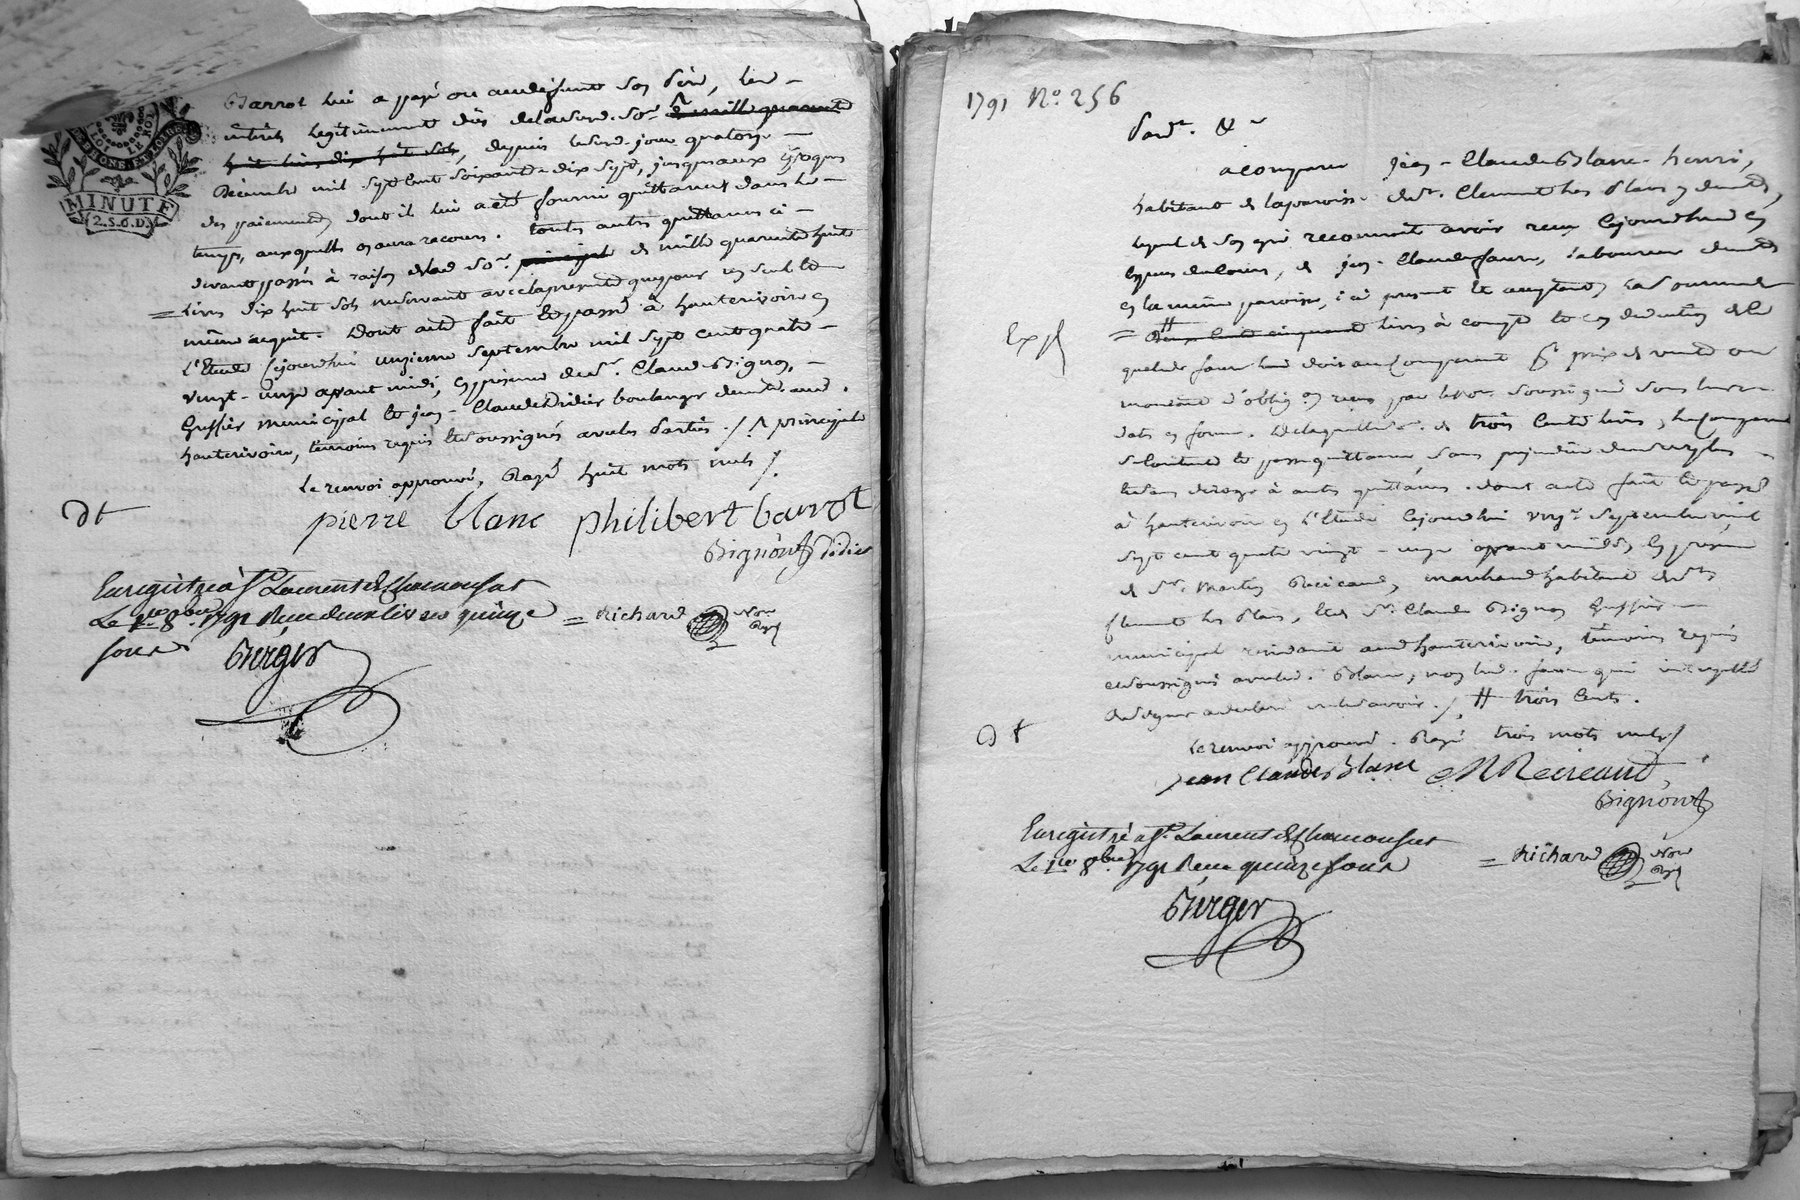 Barrot lui a payé ou audéfunt son père, les
intérets légitimement dûs delasusd. so.e de mille quarante
huit livres dix huit sols, depuis lesusd. jour quatorze
Décembre mil sept cent soixante-dix sept, jusqu'aux époques
des paiements dont il lui a été fourni quittances dans le
temps, auxquelles on aura recours. toutes autres quittances ci
devant passés à raison de lad. so.e principale de mille quarante huit
livres dix huit sols neservant aveclaprésente que pour un seul et
même acquit. Dont acte fait et passé à hauterivoire en
l'Etude cejourdhui unzieme septembre mil sept cent quatre
vingt-unze avant midi, en présence de s.r Claude Bignon,
Greffier municipal et jean-Claude Didier boulanger demt. aud.
hauterivoire, témoins requis et soussignés avec les parties ./. ^ principale
Le renvoi approuvé, Rayé huit mots nuls /.
pierre blanc philibert barrot
Bignon Didier
Enregistré à St. Laurent de Chamousset
Le 1er 8bre 1791 Reçu deux livres quinze
sous
= Richard Nore Royl
Berger
LE ROI
RHONE ET LOIRE
MINUTE
2.S.6.D.
1791 N.o 256
Pard.t &
acomparu jean-Claude Blanc-henri,
habitant de laparoisse de St. Clement les Places y demt.,
lequel de son gré reconnoit avoir reçu cejourdhui en
espèces de cours, de jean-Claude faure, laboureur demt.
en la même paroisse, ici présent et acceptant, la somme de
= # Deux cent cinquante livres à compte et en deduction de
que led. faure lui doit au Comparant
soussigné
en forme. Delaquelle so.e de trois Cents livres, le Comparant
secontente et passe quittance, sans préjudice du surplus
à autres quittances. dont acte fait et passé
à hauterivoire en l'Etude cejourdhui septembre mil
sept cent quatre vingt-unze avant midi, en présence
de s.r Martin Recicaud, marchand habitant de St.
Clement les Places, et de s.r Claude Bignon Greffier
municipal résidant aud. hauterivoire, témoins requis
et soussignés avec led. Blanc, non led. faure qui interpellé
de signer a déclaré ne le savoir. /. # trois Cents.
Le renvoi approuvé. Rayé trois mots nuls /
jean Claude Blanc M Recicaud
Bignon
Enregistré à St. Laurent de Chamousset
Le 1er 8bre 1791 Reçu quinze sous
= Richard Nore Royl
Berger